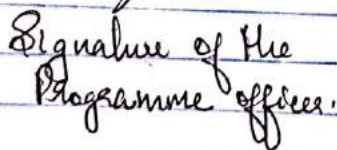 Signature of the
Programme officer.